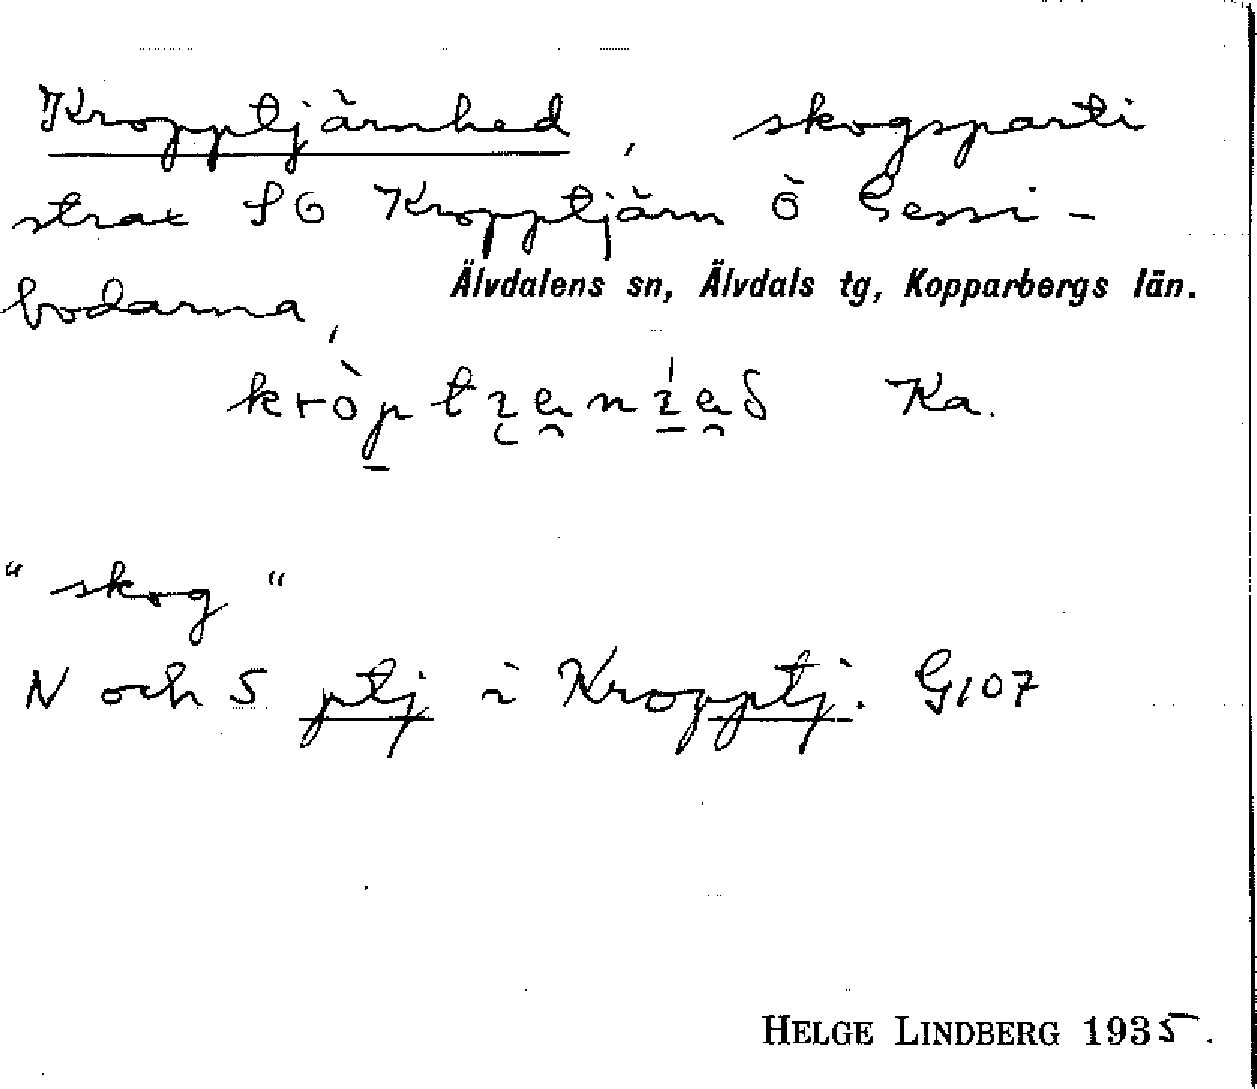 Kropptjärnhed, skogsparti
strax SÖ Kropptjärn Ö Gessi-
bodarna,
Älvdalens sn, Älvdals tg, Kopparbergs län.
Ka.
"skog"
N och S ptj i Kropptj. G107
HELGE LINDBERG 1935.